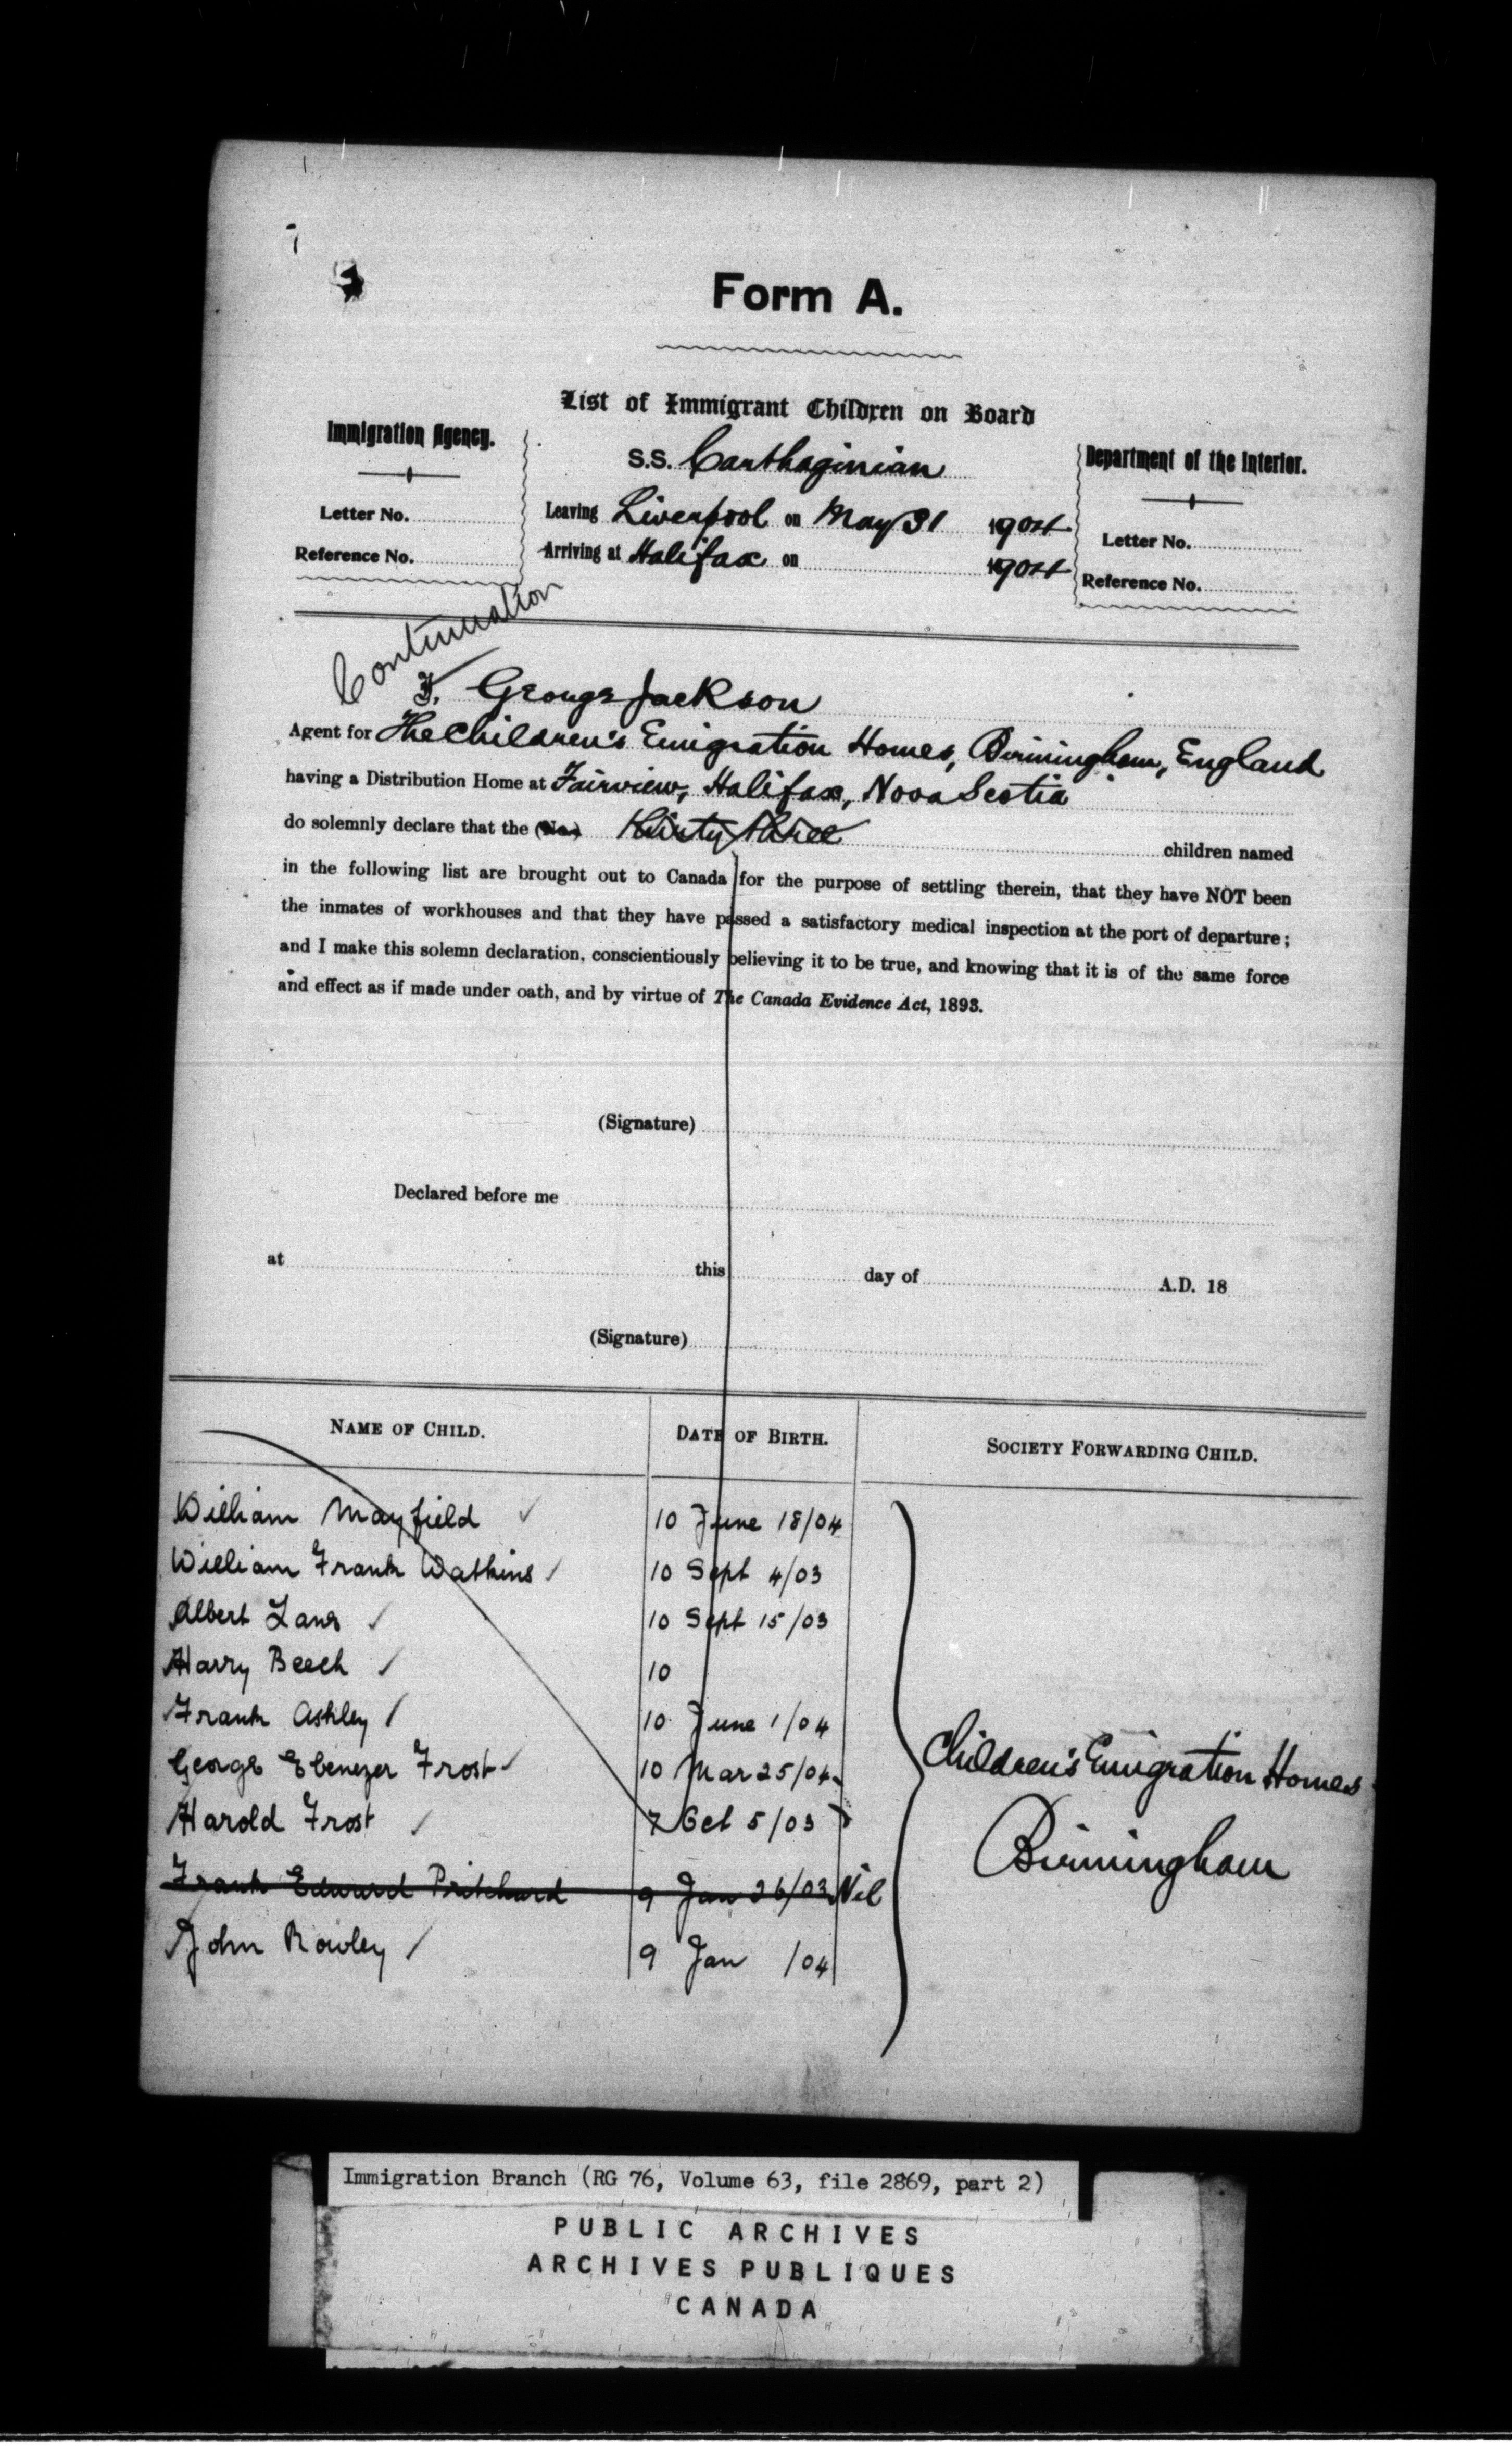 Form A.
List of Immigrant Children on Board
Immigration Agency.
S.S. Carthaginian
Department of the Interior.
Letter No.
Leaving Liverpool on May 31 1904
Letter No.
Reference No.
Arriving at Halifax on 1904
Reference No.
Continuation
I, George Jackson
Agent for The Children's Emigration Homes, Birmingham, England
having a Distribution Home at Fairview, Halifax, Nova Scotia
do solemnly declare that the (No.) thirty three children named
in the following list are brought out to Canada for the purpose of settling therein, that they have NOT been
the inmates of workhouses and that they have passed a satisfactory medical inspection at the port of departure;
and I make this solemn declaration, conscientiously believing it to be true, and knowing that it is of the same force
and effect as if made under oath, and by virtue of The Canada Evidence Act, 1893.
(Signature)
Declared before me
at this day of A.D. 18
(Signature)
NAME OF CHILD. DATE OF BIRTH. SOCIETY FORWARDING CHILD.
William Mayfield ✓ 10 June 18/04
William Frank Watkins ✓ 10 Sept 4/03
Albert Lane ✓ 10 Sept 15/03
Harry Beech ✓ 10
Frank Ashley ✓ 10 June 1/04
George Ebenezer Frost ✓ 10 Mar 25/04
Harold Frost ✓ 7 Oct 5/03
Frank Edward Pritchard 9 Jan 26/03 Nil
John Rowley ✓ 9 Jan /04
Children's Emigration Homes
Birmingham
Immigration Branch (RG 76, Volume 63, file 2869, part 2)
PUBLIC ARCHIVES
ARCHIVES PUBLIQUES
CANADA